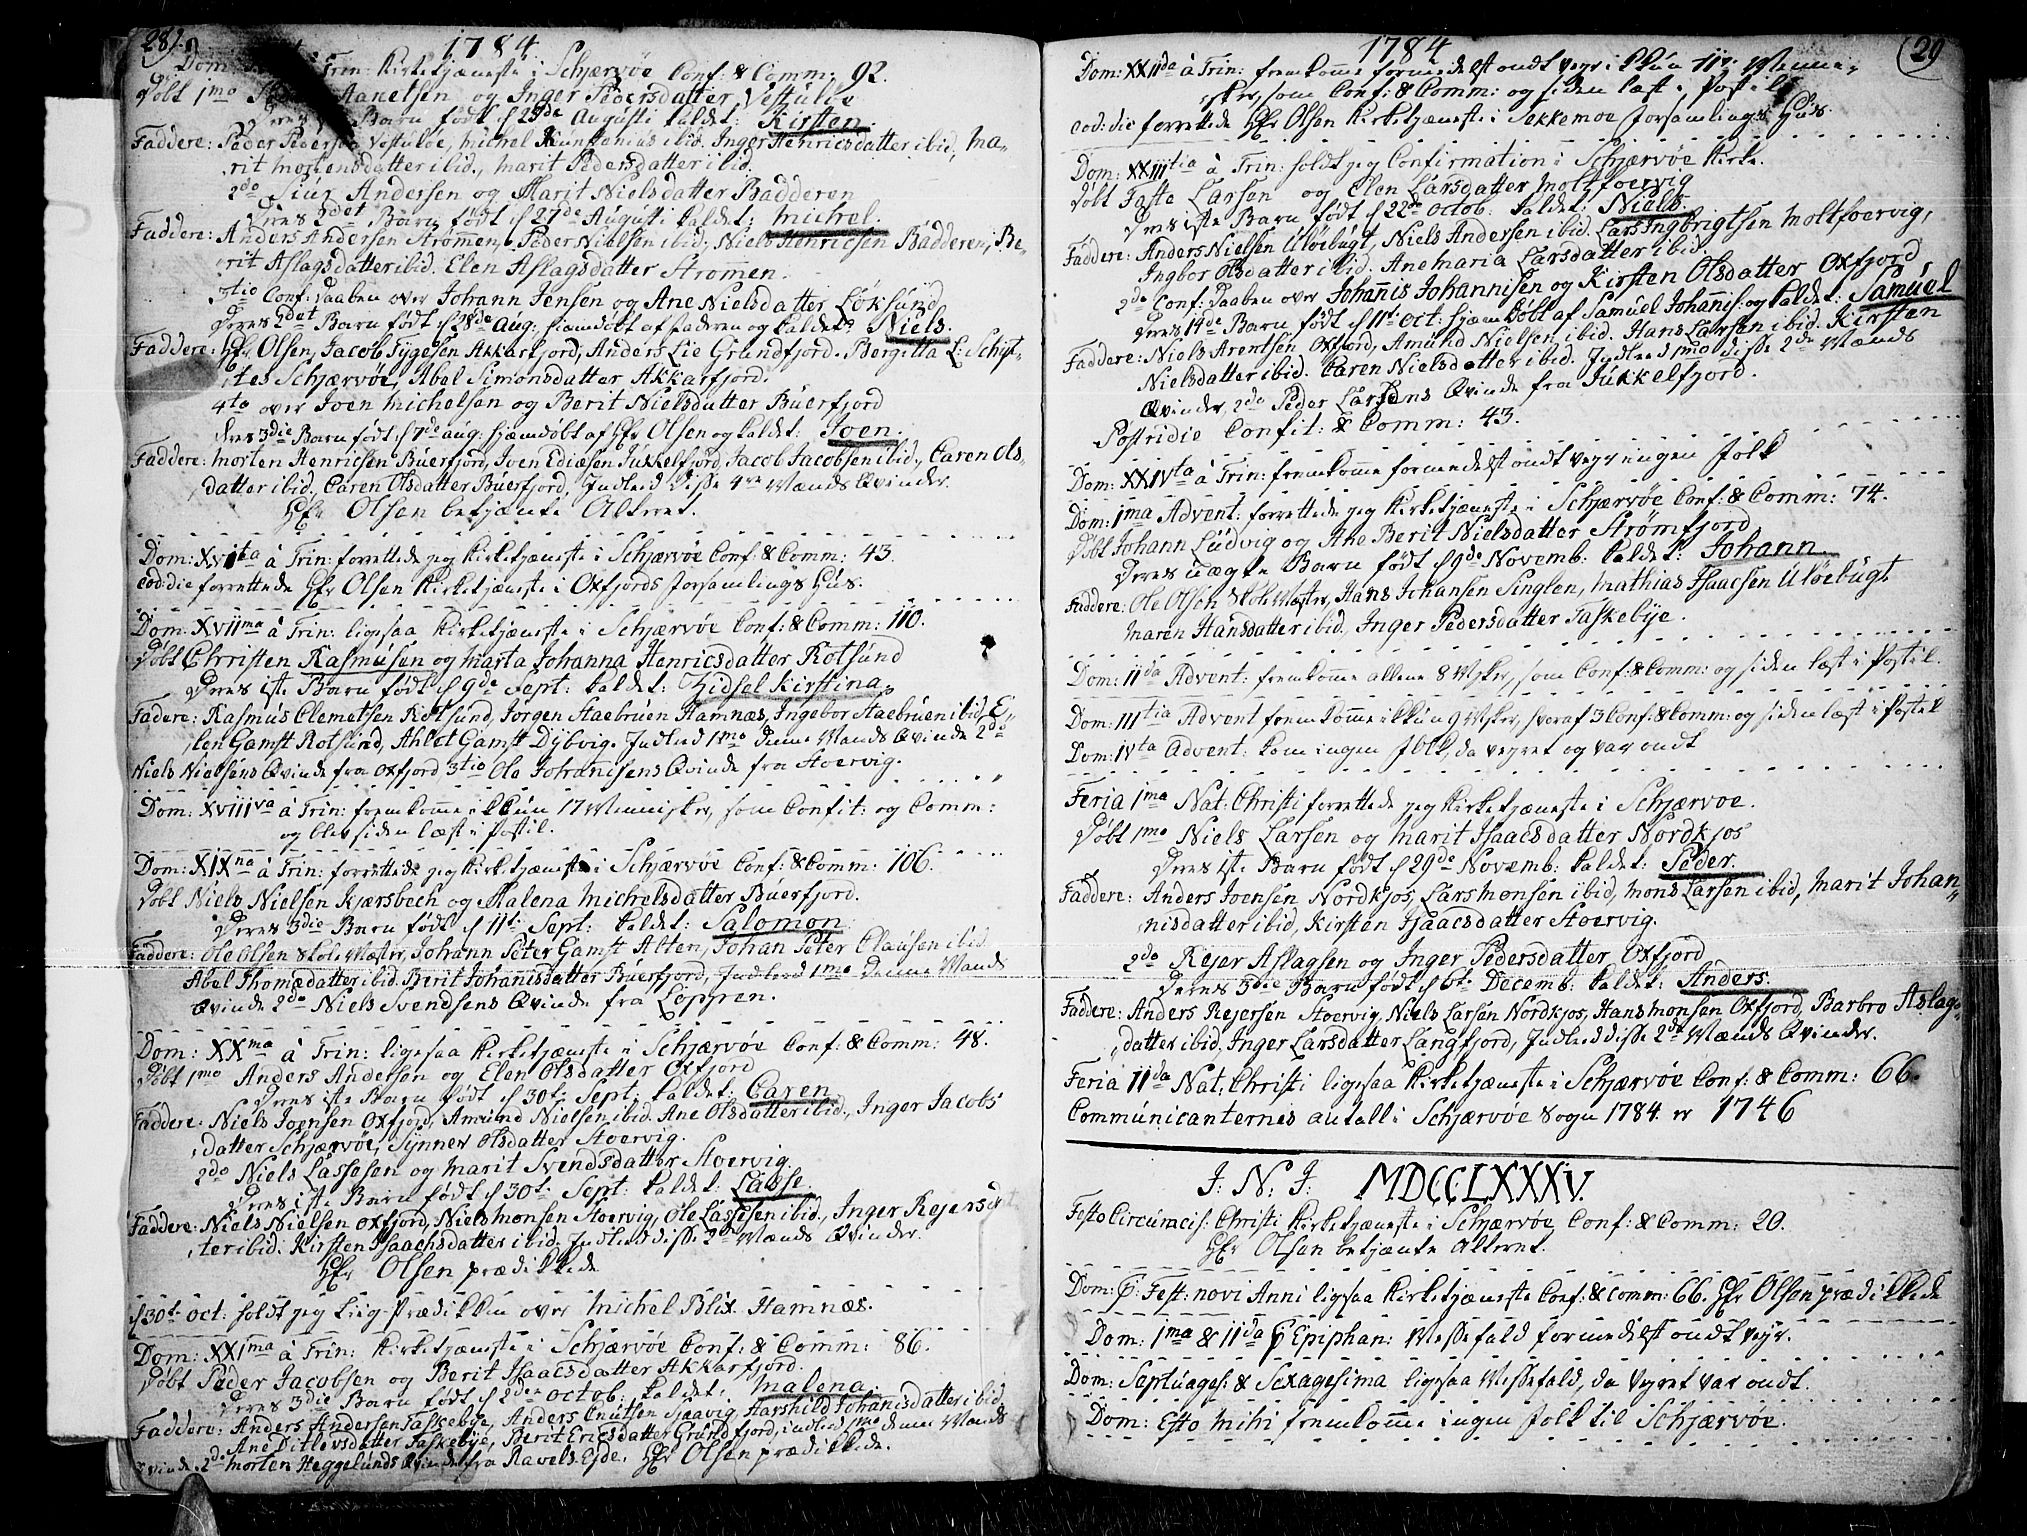 28).
1784
Dom: Trin: Kirketjæneste i Schjærvöe Conf: & Comm: 92.
Döbt 1mo Aanetsen og Inger Pedersdatter Vestulöe
Deres Barn födt d 29de Augusti kaldet: Kirsten.
Faddere: Peder Pedersen Vestulöe, Michel ibid. Inger Henricsdatter ibid., Ma-
rit Mortensdatter ibid., Marit Pedersdatter ibid.
2do Siur Andersen og Marit Nielsdatter Badderen
Deres 2det Barn födt d 27de Augusti kaldet: Michel.
Faddere: Anders Andersen Strömen, Peder Nielsen ibid, Niels Henricsen Badderen, Be-
rit Aslagsdatter ibid. Elen Aslagsdatter Strömen.
3tio Conf: Daaben over Johann Jensen og Ane Nielsdatter Löksund
Deres 2det Barn födt d 28de Aug: hjemdöbt af Faderen og kaldet: Niels.
Faddere: Hr Olsen, Jacob Tygesen Akkarfjord, Anders Lie Grundfjord. Bergitta L: Schyt-
tes Schjærvöe, Abel Simonsdatter Akkarfjord.
4to over Joen Michelsen og Berit Nielsdatter Buerfjord
deres 3die Barn födt d 7de aug: hjemdöbt af Hr Olsen og kaldet: Joen.
Faddere: Morten Henricsen Buerfjord, Iver Ediæsen Jukkelfjord, Jacob Jacobsen ibid., Caren Ols-
datter ibid., Caren Olsdatter Buerfjord, Indled disse 4re Mænds Qvinder.
Hr Olsen betjænte Alteret.
Dom: XVIta à Trin: forrettede jeg Kirketjæneste i Schjærvöe Conf: & Comm: 43.
eod: die forrettede Hr Olsen Kirketjæneste i Oxfjords Forsamlings Hus.
Dom: XVIIma à Trin: ligesaa Kirketjæneste i Schjærvöe Conf: & Comm: 110.
Döbt Christen Rasmusen og Marta Johanna Henricsdatter Rotsund
Deres 1ste Barn födt d 9de Sept: kaldet: Zidsel Kirstina.
Fadere: Rasmus Clemetsen Rotsund, Jörgen Staebruen Hamnæs, Ingebor Staebruen ibid, E-
len Gamst Rotsund, Ahlet Gamst Dybvig. Indled 1mo denne Mands Qvinde 2do
Niels Nielsens Qvinde fra Oxfjord 3tio Ole Johannisens Qvinde fra Stoervig.
Dom: XVIIIva à Trin: fremkomme ikkun 17 Mennisker, som Confit: og Comm:
og blev siden læst i Postil.
Dom: XIXna à Trin: forrettede jeg Kirketjæneste i Schjærvöe Conf: & Comm: 106.
Döbt Niels Nielsen Kjærsbech og Malena Michelsdatter Buerfjord.
Deres 3die Barn födt d 11te Sept: kaldet: Salomon
Faddere: Ole Olsen Skole Mester, Johann Peter Gamst Alten, Johan Peter Clausen ibid
Abel Thomædatter ibid. Berit Johannisdatter Buerfjord, Indled 1mo denne Mands
Qvinde 2do Niels Svendsens Qvinde fra Loppen.
Dom: XXma à Trin: ligesaa Kirketjæneste i Schjærvöe Conf: & Comm: 48.
Döbt 1mo Anders Andersen og Elen Olsdatter Oxfjord
Deres 1ste Barn födt d 30te Sept: kaldet: Caren
Faddere: Niels Joensen Oxfjord, Amund Nielsen ibid. Ane Olsdatter ibid., Inger Jacobs
datter Schjærvöe, Synner Olsdatter Stoervig.
2do Niels Lassesen og Marit Svendsdatter Stoervig
Deres 1ste Barn födt d 30te Sept: kaldet: Lasse.
Faddere: Niels Nielsen Oxfjord, Niels Monsen Stoervig, Ole Lassesen ibid., Inger Rejersdat
ter ibid. Kirsten Isaachsdatter ibid. Indled disse 2de Mænds Qvinder.
Hr Olsen prædikkede
d 30te Oct: holdt jeg Liig-Prædikken over Michel Blix Hamnæs.
Dom: XXIma à Trin: Kirketjæneste i Schjærvöe Conf: & Comm: 86.
Döbt Peder Jacobsen og Berit Isaacsdatter Akkarfjord.
Deres 3die Barn födt d 2den Octob: kaldet: Malena
Faddere: Anders Andersen Taskebye, Anders Cnutsen Sjaavig, Harshild Johannisdatter ibid.
Ane Ditlevsdatter Taskebye, Berit Ericsdatter Grundfjord, indled 1mo denne Mands
Qvinde. 2do Morten Heggelunds Qvinde fra Ravels-Ejde. Hr Olsen prædikkede.
1784
(29
Dom: XXIIda à Trin: fremkomme formedelst ondt veyr ikkun 11ve Menne-
sker, som Conf: & Comm: og siden læst i Postil
eod: die forrettede Hr Olsen Kirketjæneste i Sekkemoe Forsamlings Hus
Dom: XXIIItia à Trin: holdt jeg Confirmation i Schjærvöe Kirke.
Döbt Faste Larsen og Elen Larsdatter Moltfoervig
Deres 1ste Barn födt d 22de Octob. kaldet: Niels.
Faddere: Anders Nielsen Ulöebugt, Niels Andersen ibid. Lars Ingbrigtsen Moltfoervig,
Ingbor Olsdatter ibid. Ane Maria Larsdatter ibid.
2do Conf: Daaben over Johannis Johannisen og Kirsten Olsdatter Oxfjord
Deres 14de Barn födt d 11te Oct: hjemdöbt af Samuel Johannis: og kaldet: Samuel
Faddere: Niels Arentsen Oxfjord, Amund Nielsen ibid. Hans Larsen ibid. Kirsten
Nielsdatter ibid. Caren Nielsdatter ibid. Indled 1mo disse 2de Mænds
Qvinder, 2do Peder Larsens Qvinde fra Jukkelfjord.
Postridie Confit: & Comm: 43.
Dom: XXIVta à Trin: fremkomme formedelst ondt veyr ingen Folk
Dom: 1ma Advent: forrettede jeg Kirketjæneste i Schjærvöe Conf: & Comm: 74.
Döbt Johann Ludvig og Ane Berit Nielsdatter Strömfjord
Deres uægte Barn födt d 9de Novemb: kaldet: Johann
Faddere: Ole Olsen Skole Mester, Hans Johansen Singlen, Mathias Isaacsen Ulöebugt
Maren Hansdatter ibid, Inger Pedersdatter Taskebye.
Dom: IIda Advent: fremkomme allene 8 Msker, som Conf: & Comm: og siden læst i Postil.
Dom: IIItia Advent fremkomme ikkun 9 Msker, hvoraf 3 Conf: & Comm: og siden læst i Postil
Dom: IVta Advent: kom ingen Folk, da veyret og var ondt
Feria 1ma Nat: Christi forrettede jeg Kirketjæneste i Schjærvöe.
Döbt 1mo Niels Larsen og Marit Isaacsdatter Nordkjos
Deres 1ste Barn födt d 29de Novemb: kaldet: Peder.
Faddere: Anders Joensen Nordkjos, Lars Monsen ibid, Mons Larsen ibid, Marit Johan-
nisdatter ibid, Kirsten Isaacsdatter Stoervig.
2do Rejer Aslagsen og Inger Pedersdatter Oxfjord
Deres 3die Barn födt d 6te Decemb: kaldet: Anders.
Faddere: Anders Rejersen Stoervig, Niels Larsen Nordkjos, Hans Monsen Oxfjord, Barbro Aslags-
datter ibid. Inger Larsdatter Langfjord, Indled disse 2de Mænds Qvinder.
Feria IIda Nat: Christi ligesaa Kirketjæneste i Schjærvöe Conf: & Comm: 66.
Communicanternes antall i Schjærvöe Sogn 1784 er 1746
J: N: J: MDCCLXXXV.
Festo Circumcis: Christi Kirketjæneste i Schjærvöe Conf: & Comm: 20.
Hr Olsen betjænte Alteret.
Dom: p: Fest: novi Anni ligesaa Kirketjæneste Conf: & Comm: 66. Hr Olsen prædikkede
Dom: 1ma & IIda p Epiphan: Messefald formedelst ondt vejr.
Dom: Septuages: & Sexagesima ligesaa Messefald, da Veyret var ondt.
Dom: Esto Mihi fremkomme ingen Folk til Schjærvöe.